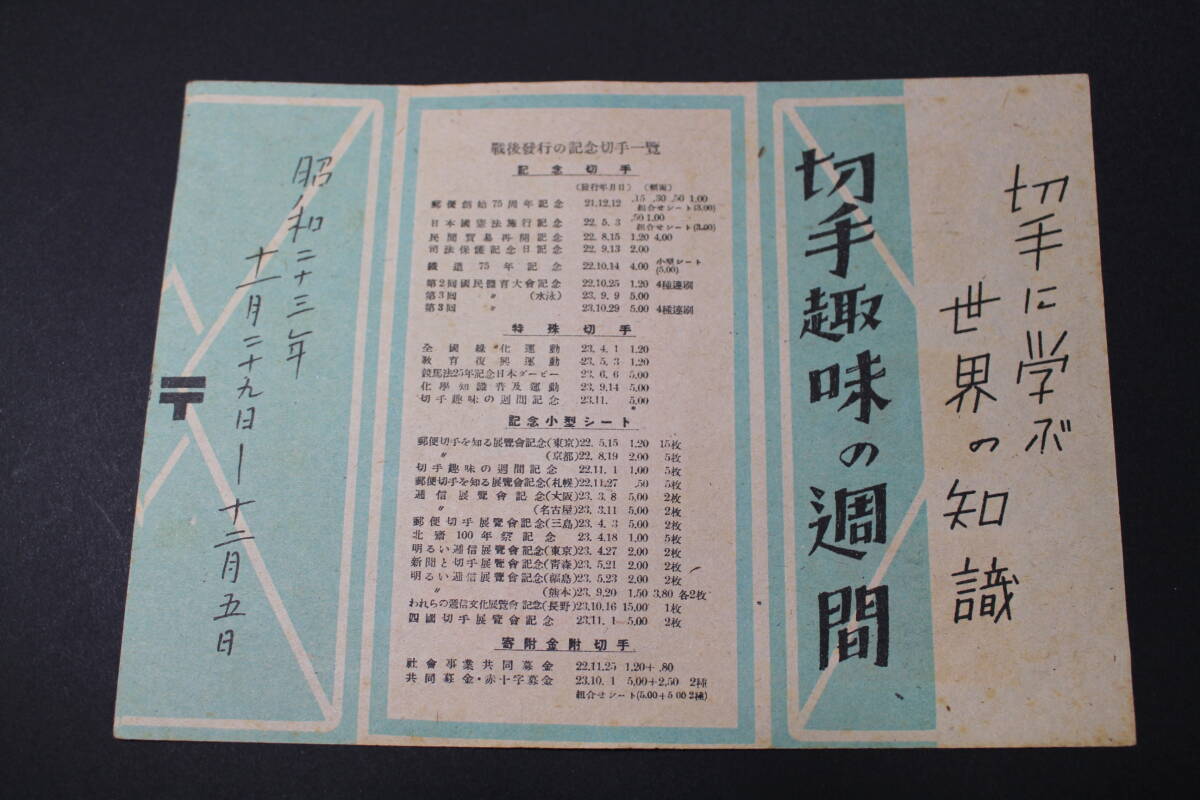 切手に学ぶ
世界の知識
切手趣味の週間
戰後發行の記念切手一覽
記念切手
(發行年月日) (額面)
郵便創始75周年記念 21.12.12 .15 .30 .50 1.00
組合せシート(3.00)
日本國憲法施行記念 22.5.3 .50 1.00
組合せシート(3.00)
民間貿易再開記念 22.8.15 1.20 4.00
司法保護記念日記念 22.9.13 2.00
鐵道75年記念 22.10.14 4.00 小型シート(5.00)
第2回國民體育大會記念 22.10.25 1.20 4種連刷
第3回 〃 (水泳) 23.9.9 5.00
第3回 〃 23.10.29 5.00 4種連刷
特殊切手
全國綠化運動 23.4.1 1.20
教育復興運動 23.5.3 1.20
競馬法25年記念日本ダービー 23.6.6 5.00
化學知識普及運動 23.9.14 5.00
切手趣味の週間記念 23.11. 5.00
記念小型シート
郵便切手を知る展覽會記念(東京) 22.5.15 1.20 15枚
〃 (京都) 22.8.19 2.00 5枚
切手趣味の週間記念 22.11.1 1.00 5枚
郵便切手を知る展覽會記念(札幌) 22.11.27 .50 5枚
遞信展覽會記念(大阪) 23.3.8 5.00 2枚
〃 (名古屋) 23.3.11 5.00 2枚
郵便切手展覽會記念(三島) 23.4.3 5.00 2枚
北齋100年祭記念 23.4.18 1.00 5枚
明るい遞信展覽會記念(東京) 23.4.27 2.00 2枚
新聞と切手展覽會記念(靑森) 23.5.21 2.00 2枚
明るい遞信展覽會記念(福島) 23.5.23 2.00 2枚
〃 (熊本) 23.9.20 1.50 3.80 各2枚
われらの遞信文化展覽會記念(長野) 23.10.16 15.00 1枚
四國切手展覽會記念 23.11.1 5.00 2枚
寄附金附切手
社會事業共同募金 22.11.25 1.20+.80
共同募金・赤十字募金 23.10.1 5.00+2.50 2種
組合せシート(5.00+5.00 2種)
昭和二十三年
十一月二十九日―十二月五日
〒